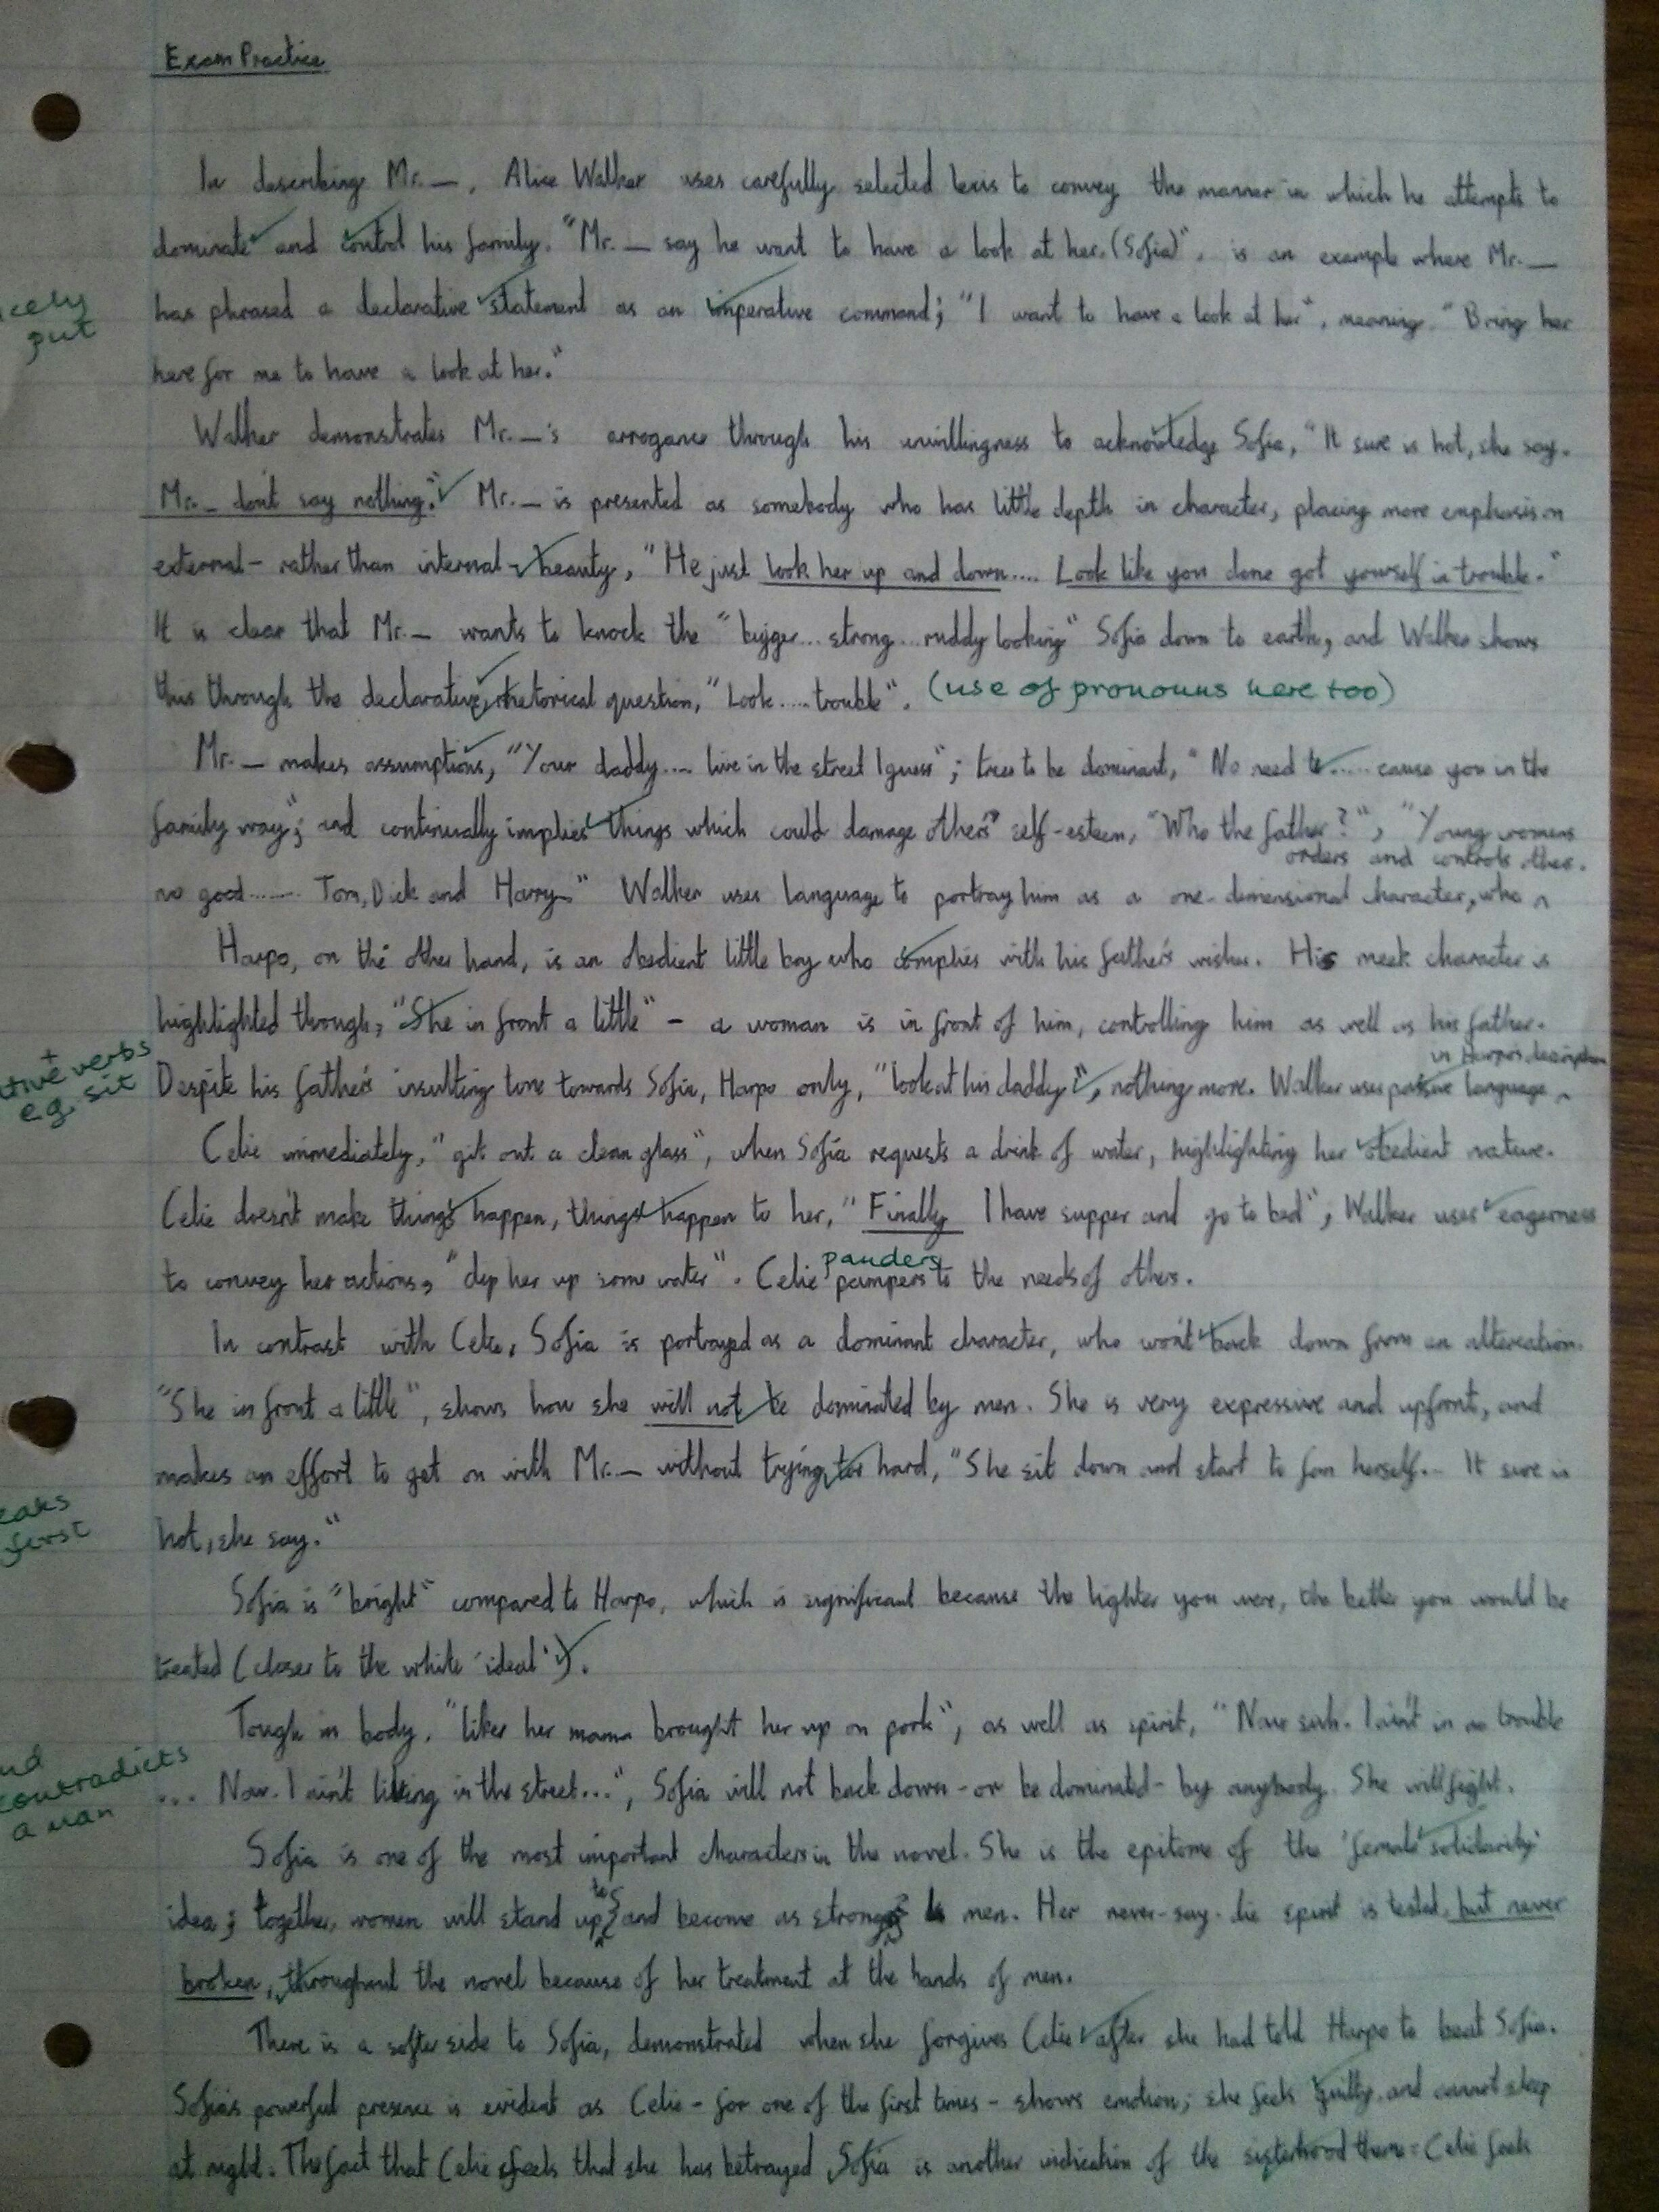 Exam Practice
In describing Mr. —, Alice Walker uses carefully selected lexis to convey the manner in which he attempts to
dominate and control his family. "Mr. — say he want to have a look at her. (Sofia)". is an example where Mr. —
has phrased a declarative statement as an imperative command; "I want to have a look at her", meaning, "Bring her
icely
put
here for me to have a look at her."
Walker demonstrates Mr. —'s arrogance through his unwillingness to acknowledge Sofia, "It sure is hot, she say.
Mr. — don't say nothing." Mr. — is presented as somebody who has little depth in character, placing more emphasis on
external - rather than internal - beauty, "He just look her up and down.... Look like you done got yourself in trouble."
It is clear that Mr. — wants to knock the "bigger... strong... ruddy looking" Sofia down to earth, and Walker shows
this through the declarative, rhetorical question, "Look..... trouble". (use of pronouns here too)
Mr. — makes assumptions, "Your daddy.... live in the street I guess"; tries to be dominant, "No need to..... cause you in the
family way"; and continually implies things which could damage others' self-esteem, "Who the father?", "Young womens
orders and controls other.
no good....... Tom, Dick and Harry." Walker uses language to portray him as a one-dimensional character, who
Harpo, on the other hand, is an obedient little boy who complies with his father's wishes. His meek character is
highlighted though, "She in front a little" - a woman is in front of him, controlling him as well as his father.
in Harpo's description
+
tive verbs
e.g. sit
Despite his father's insulting tone towards Sofia, Harpo only, "look at his daddy", nothing more. Walker uses passive language
Celie immediately, "git out a clean glass", when Sofia requests a drink of water, highlighting her obedient nature.
Celie doesn't make things happen, things happen to her, "Finally I have supper and go to bed"; Walker uses eagerness
panders
to convey her actions, "dip her up some water". Celie pampers to the needs of others.
In contrast with Celie, Sofia is portrayed as a dominant character, who won't back down from an altercation.
"She in front a little", shows how she will not be dominated by men. She is very expressive and upfront, and
makes an effort to get on with Mr. — without trying too hard, "She sit down and start to fan herself... It sure is
eaks
first
hot, she say."
Sofia is "bright" compared to Harpo, which is significant because the lighter you were, the better you would be
treated (closer to the white 'ideal').
Tough in body, "like her mama brought her up on pork", as well as spirit, "Naw suh. I ain't in no trouble
nd
contradicts
a man
... Naw. I ain't living in the street...", Sofia will not back down - or be dominated - by anybody. She will fight.
Sofia is one of the most important characters in the novel. She is the epitome of the 'female solidarity'
to
idea; together, women will stand up and become as strong as men. Her never-say-die spirit is tested, but never
broken, throughout the novel because of her treatment at the hands of men.
There is a softer side to Sofia, demonstrated when she forgives Celie after she had told Harpo to beat Sofia.
Sofia's powerful presence is evident as Celie - for one of the first times - shows emotion; she feels guilty and cannot sleep
at night. The fact that Celie feels that she has betrayed Sofia is another indication of the sisterhood theme: Celie feels